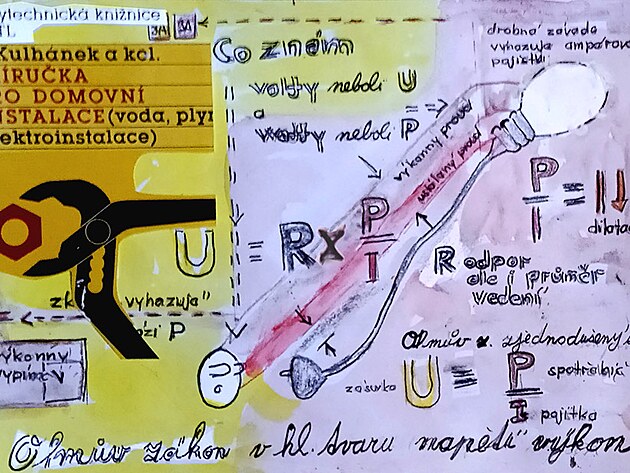 ytechnická knižnice
TL
3A 3A
Kulhánek a kcl.
ÍRUČKA
RO DOMOVNÍ
NSTALACE (voda, plyn
ektroinstalace)
Co znám
volty neboli U
a
watty neboli P
drobná závada
vyhazuje ampérovo
pojistku
výkonný proud
ustálený proud
U = R x P
I
P = U
I
dilata
R odpor
dle i průměr
vedení
zk vyhazuje"
ýkonný
vypínač
P
Ohmův z. zjednodušený
zásuvka
U = P spotřebič
I pojitka
Ohmův zákon v hl. tvaru napětí výkon